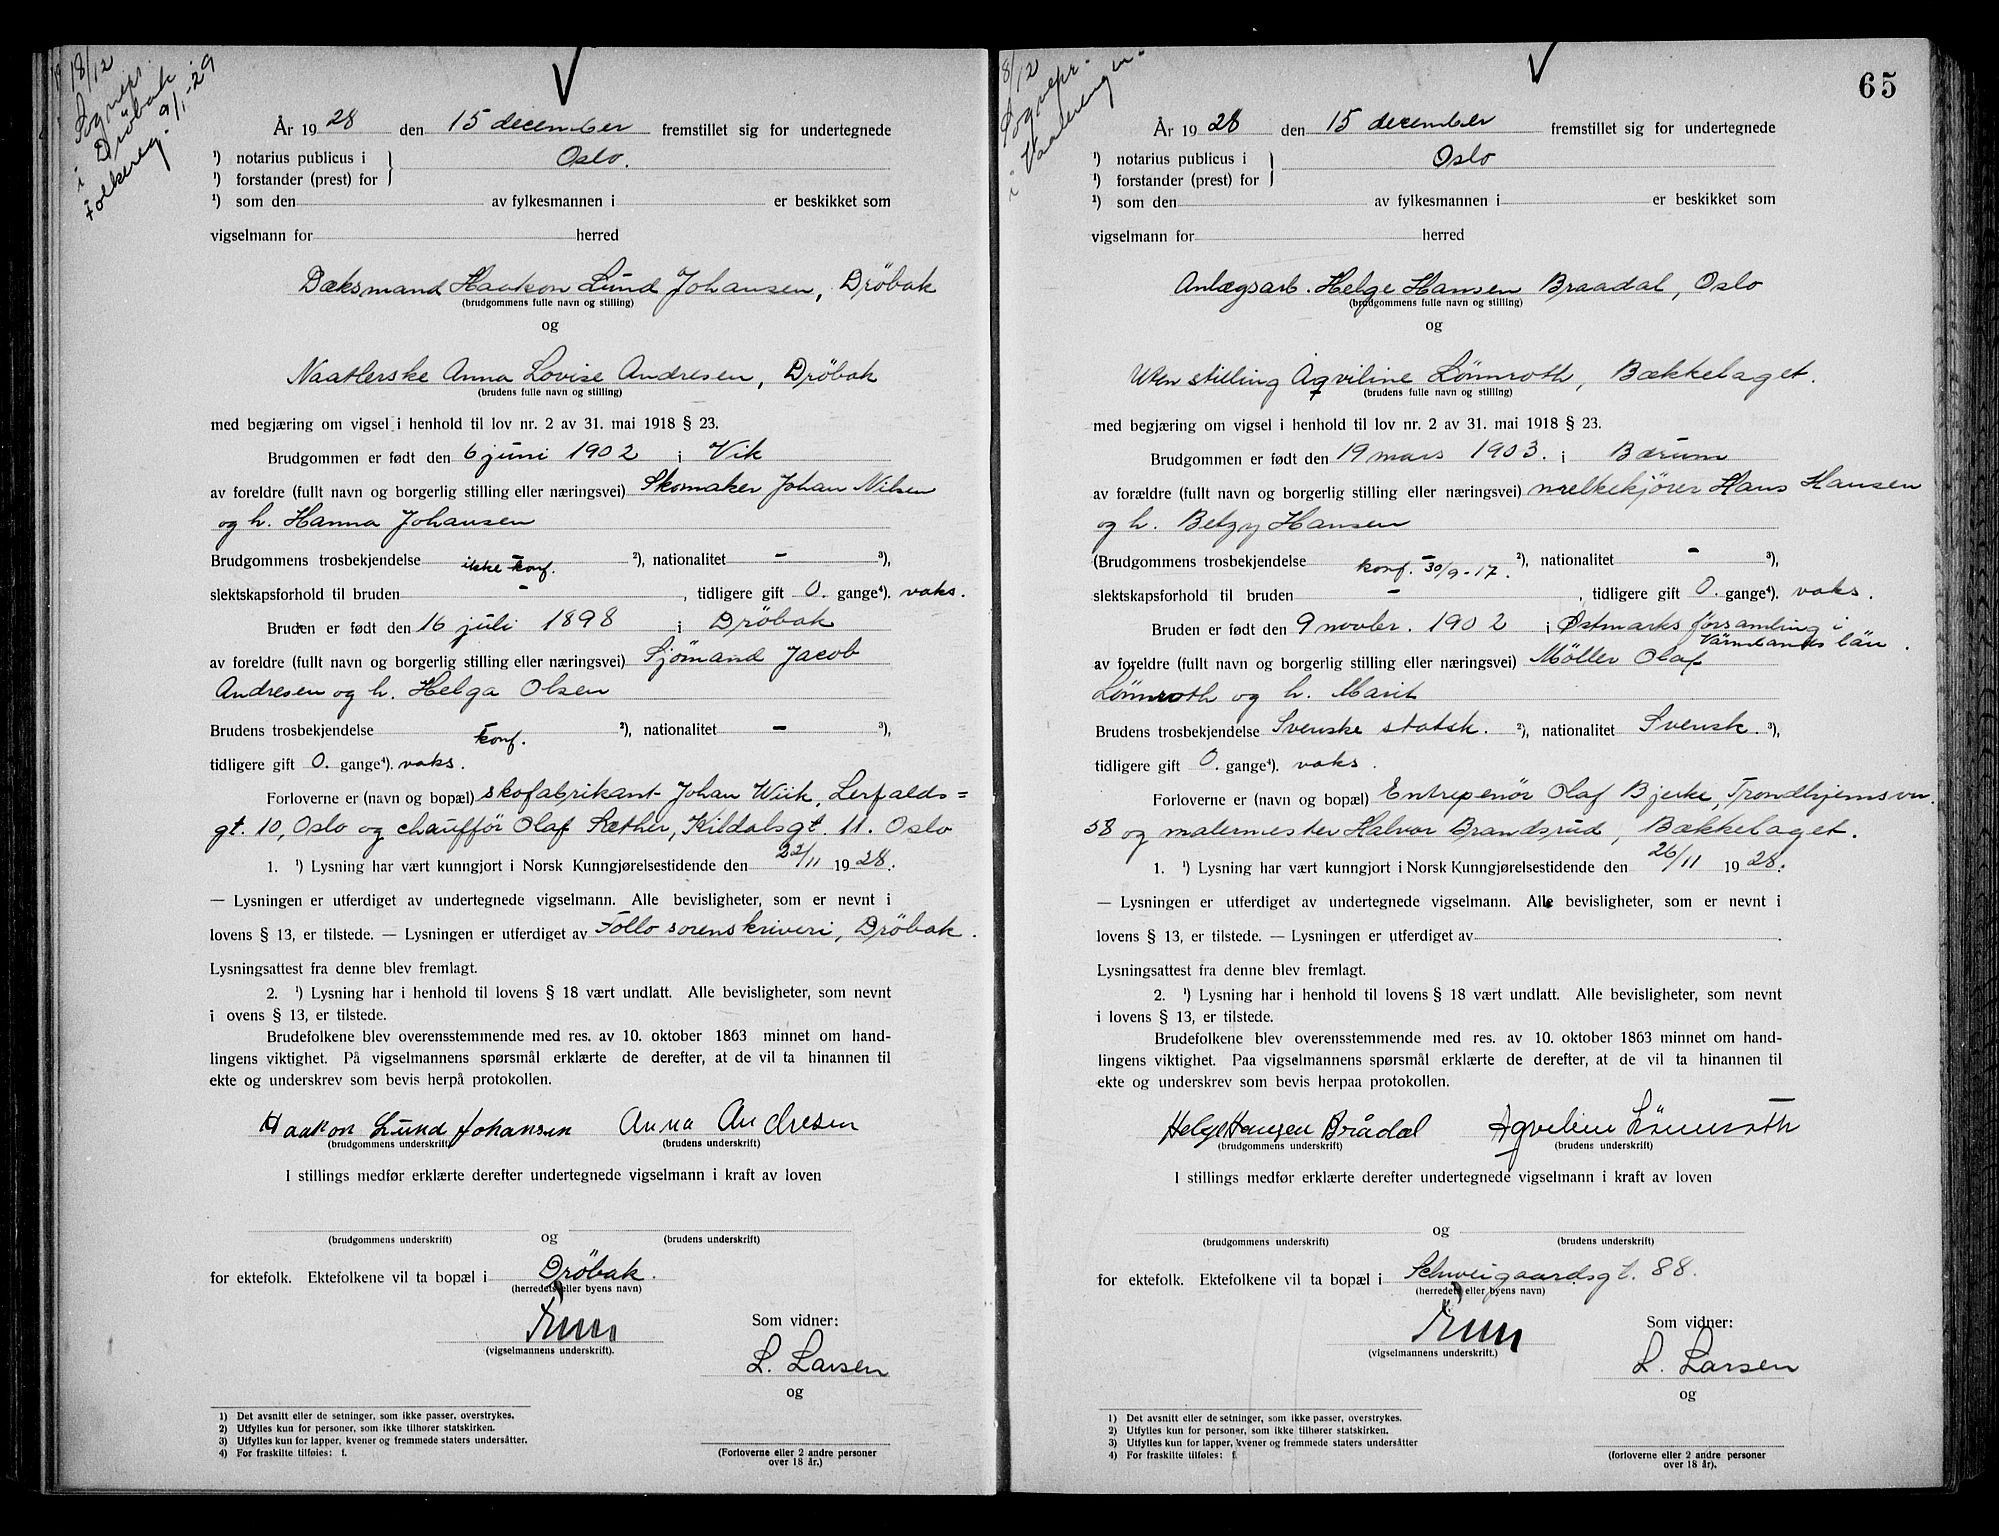 18/12
Sognepr.
i Drøbak
Folkereg. 9/1-29
År 1928 den 15 december fremstillet sig for undertegnede
¹) notarius publicus i } Oslo.
¹) forstander (prest) for
¹) som den av fylkesmannen i er beskikket som
vigselmann for herred
Dæksmand Haakon Lund Johansen, Drøbak
(brudgommens fulle navn og stilling)
og
Naatlerske Anna Lovise Andresen, Drøbak
(brudens fulle navn og stilling)
med begjæring om vigsel i henhold til lov nr. 2 av 31. mai 1918 § 23.
Brudgommen er født den 6 juni 1902 i Vik
av foreldre (fullt navn og borgerlig stilling eller næringsvei) Skomaker Johan Nilsen
og h. Hanna Johansen
Brudgommens trosbekjendelse - ²), nationalitet - ³),
ikke konf.
slektskapsforhold til bruden - , tidligere gift 0. gange⁴). vaks.
Bruden er født den 16 juli 1898 i Drøbak
av foreldre (fullt navn og borgerlig stilling eller næringsvei) Sjømand Jacob
Andresen og h. Helga Olsen
Brudens trosbekjendelse - ²), nationalitet - ³),
konf.
tidligere gift 0. gange⁴). vaks.
Forloverne er (navn og bopæl) skofabrikant Johan Wiik, Lerfalds=
gt. 10, Oslo og chaufför Olaf Sæther, Kildalsgt. 11. Oslo
1. ¹) Lysning har vært kunngjort i Norsk Kunngjørelsestidende den 22/11 1928.
— Lysningen er utferdiget av undertegnede vigselmann. Alle bevisligheter, som er nevnt i
lovens § 13, er tilstede. — Lysningen er utferdiget av Follo sorenskriveri, Drøbak.
Lysningsattest fra denne blev fremlagt.
2. ¹) Lysning har i henhold til lovens § 18 vært undlatt. Alle bevisligheter, som nevnt
i ovens § 13, er tilstede.
Brudefolkene blev overensstemmende med res. av 10. oktober 1863 minnet om hand-
lingens viktighet. På vigselmannens spørsmål erklærte de derefter, at de vil ta hinannen til
ekte og underskrev som bevis herpå protokollen.
Haakon Lund Johansen Anna Andresen
(brudgommens underskrift) (brudens underskrift)
I stillings medfør erklærte derefter undertegnede vigselmann i kraft av loven
og
(brudgommens underskrift) (brudens underskrift)
for ektefolk. Ektefolkene vil ta bopæl i Drøbak.
(herredets eller byens navn)
Som vidner:
(vigselmannens underskrift).
L. Larsen
og
1) Det avsnitt eller de setninger, som ikke passer, overstrykes.
2) Utfylles kun for personer, som ikke tilhører statskirken.
3) Utfylles kun for lapper, kvener og fremmede staters undersåtter.
4) For fraskilte tilføies: f.
(Forloverne eller 2 andre personer
over 18 år.)
65
8/12
Sognepr.
i Vaalerengen.
År 1928 den 15 december fremstillet sig for undertegnede
¹) notarius publicus i } Oslo
¹) forstander (prest) for
¹) som den av fylkesmannen i er beskikket som
vigselmann for herred
Anlægsarb. Helge Hansen Braadal, Oslo
(brudgommens fulle navn og stilling)
og
Uten stilling Aqviline Lønnroth, Bækkelaget.
(brudens fulle navn og stilling)
med begjæring om vigsel i henhold til lov nr. 2 av 31. mai 1918 § 23.
Brudgommen er født den 19 mars 1903. i Bærum
av forældre (fullt navn og borgerlig stilling eller næringsvei) melkekjører Hans Hansen
og h. Betzy Hansen
(Brudgommens trosbekjendelse - ²), nationalitet - ³),
konf. 30/9-17.
slektskapsforhold til bruden - , tidligere gift 0. gange⁴). vaks.
Bruden er født den 9 novbr. 1902 i Østmarks församling i
Värmlands län.
av foreldre (fullt navn og borgerlig stilling eller næringsvei) Møller Olaf
Lønnroth og h. Marit
Brudens trosbekjendelse Svenske statsk. ²), nationalitet Svensk. ³),
tidligere gift 0. gange⁴). vaks.
Forloverne er (navn og bopæl) Entrepenør Olaf Bjerke, Trondhjemsvn.
58 og malermester Halvor Brandsrud, Bækkelaget.
1. ¹) Lysning har vært kunngjort i Norsk Kunngjørelsestidende den 26/11 1928.
— Lysningen er utferdiget av undertegnede vigselmann. Alle bevisligheter, som er nevnt i
lovens § 13, er tilstede. — Lysningen er utferdiget av
Lysningsattest fra denne blev fremlagt.
2. ¹) Lysning har i henhold til lovens § 18 vært undlatt. Alle bevisligheter, som nevnt
i lovens § 13, er tilstede.
Brudefolkene blev overensstemmende med res. av 10. oktober 1863 minnet om hand-
lingens viktighet. Paa vigselmannens spørsmål erklærte de derefter, at de vil ta hinannen til
ekte og underskrev som bevis herpaa protokollen.
Helge Hansen Brådal Aqveline Lönnroth
(brudgommens underskrift) (brudens underskrift)
I stillings medfør erklærte derefter undertegnede vigselmann i kraft av loven
og
(brudgommens underskrift) (brudens underskrift)
for ektefolk. Ektefolkene vil ta bopæl i Schweigaardsgt. 88.
(herredets eller byens navn)
Som vidner:
(vigselmannens underskrift.)
L. Larsen
og
1) Det avsnitt eller de setninger, som ikke passer, overstrykes.
2) Utfylles kun for personer, som ikke tilhører statskirken.
3) Utfylles kun for lapper, kvener og fremmede staters undersåtter
4) For fraskilte tilføies: f.
(forloverne eller 2 andre personer
over 18 år).